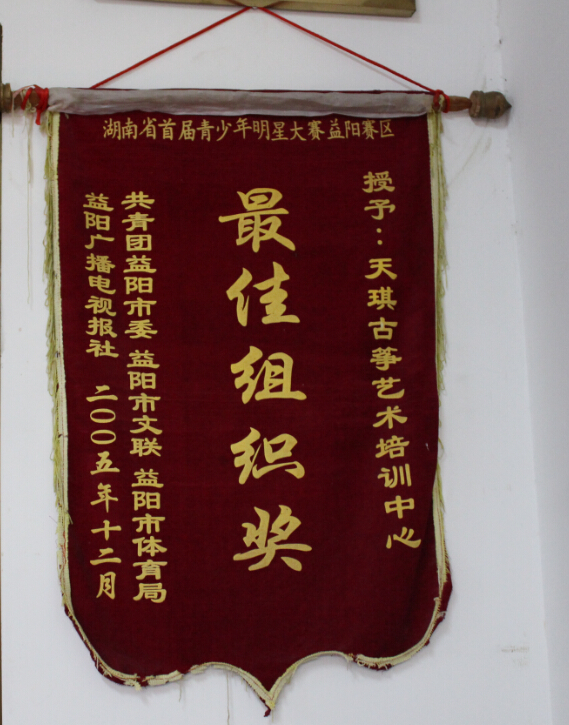 湖南省首届青少年明星大赛益阳赛区
授予：天琪古筝艺术培训中心
最佳组织奖
共青团益阳市委 益阳市文联 益阳市体育局
益阳广播电视报社 二○○五年十二月